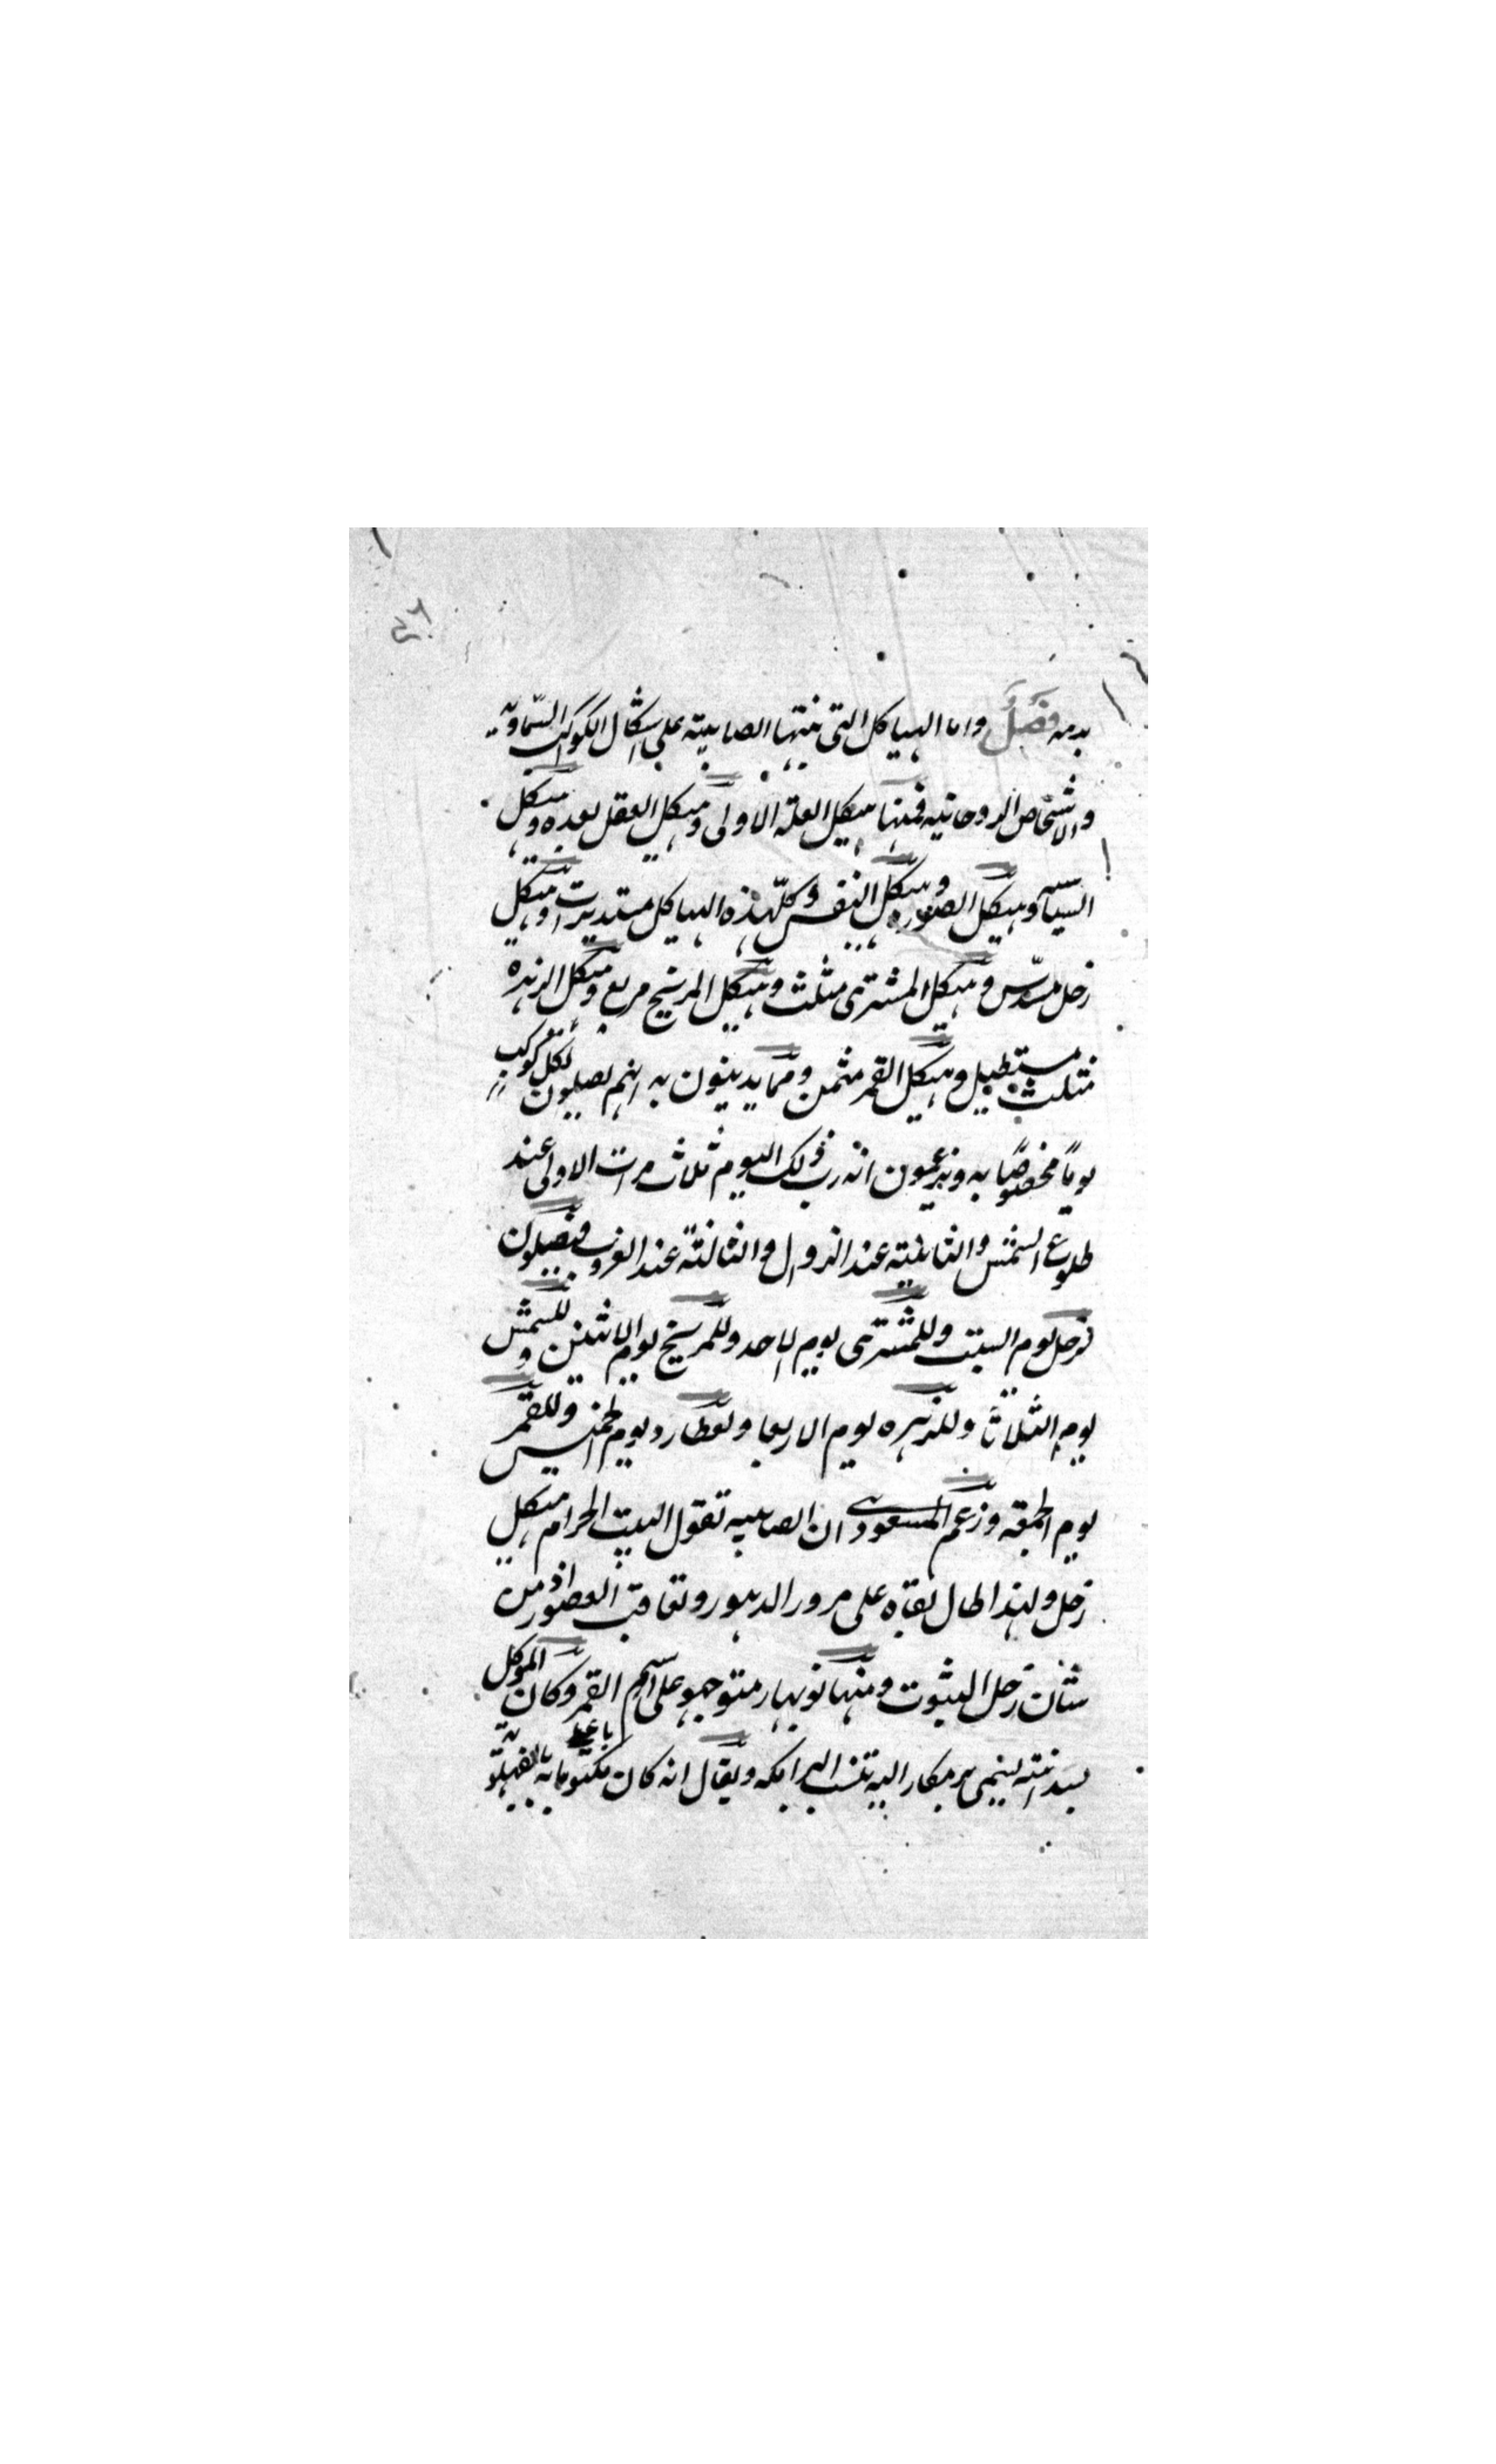 بدمه فصل واما الهياكل التى بنتها الصابيته على اشكال الكواكب السماوية
والاشخاص الروحانيه فمنها هيكل العلة الاولى وهيكل العقل بعده وهيكل
السياسه وهيكل الصوره وهيكل النفس وكل هذه الهياكل مستديرات وهيكل
زحل مسدس وهيكل المشترى مثلث وهيكل المريخ مربع وهيكل الزهره
مثلث مستطيل وهيكل القمر مثمن ومما يدينون به انهم يصلون لكل كوكب
يوماً مخصوصاً به ويزعمون انه رب ذلك اليوم ثلاث مرات الاولى عند
طلوع الشمس والثانية عند الزوال والثالثة عند الغروب فيصلون
لزحل يوم السبت وللمشترى يوم الاحد وللمريخ يوم الاثنين وللشمس
يوم الثلاثا وللزهره يوم الاربعا ولعطارد يوم الخميس وللقمر
يوم الجمعه وزعم المسعودى ان الصابيه تقول البيت الحرام هيكل
زحل ولهذا طال بقاه على مرور الدهور وتعاقب العصور اذ من
شان زحل الثبوت ومنها نوبهار منوجهر على اسم القمر وكان الموكل
بسدانته يسمى برمكا واليه تنسب البرامكه ويقال انه كان مكتوبا على بابه بالفهلوية